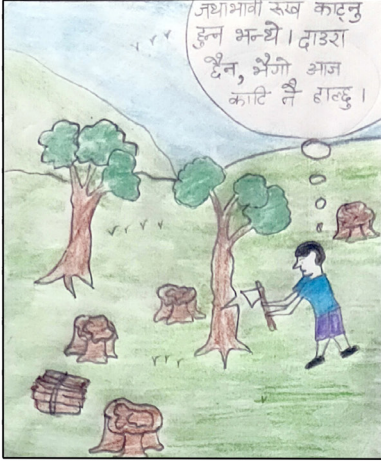 जथाभावी रूख काट्नु
हुन्न भन्थे। दाउरा
छैन, भैगो आज
काटि नै हाल्छु।